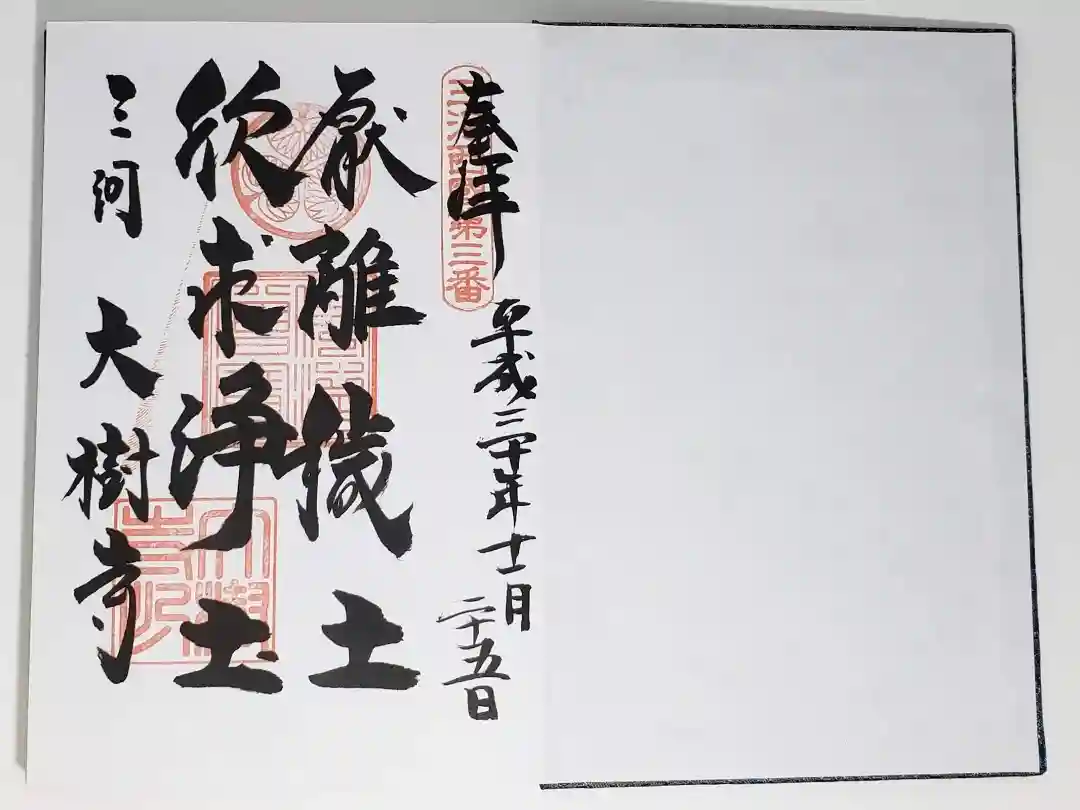 奉拝
三河西国第三番
平成三十年十二月
二十五日
厭離穢土
欣求浄土
三河
大樹寺